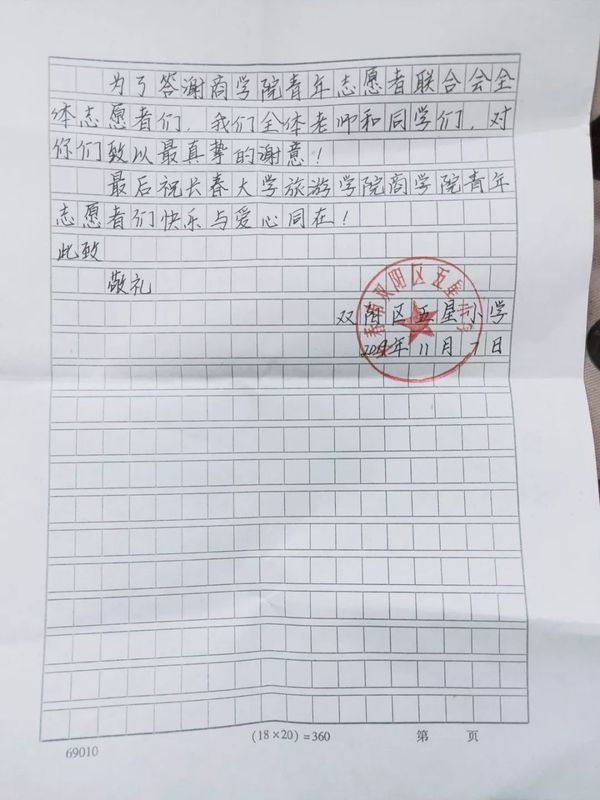 为了答谢商学院青年志愿者联合会全
体志愿者们，我们全体老师和同学们，对
你们致以最真挚的谢意！
最后祝长春大学旅游学院商学院青年
志愿者们快乐与爱心同在！
此致
敬礼
双阳区五星小学
年11月7日
69010
(18×20)=360
第 页